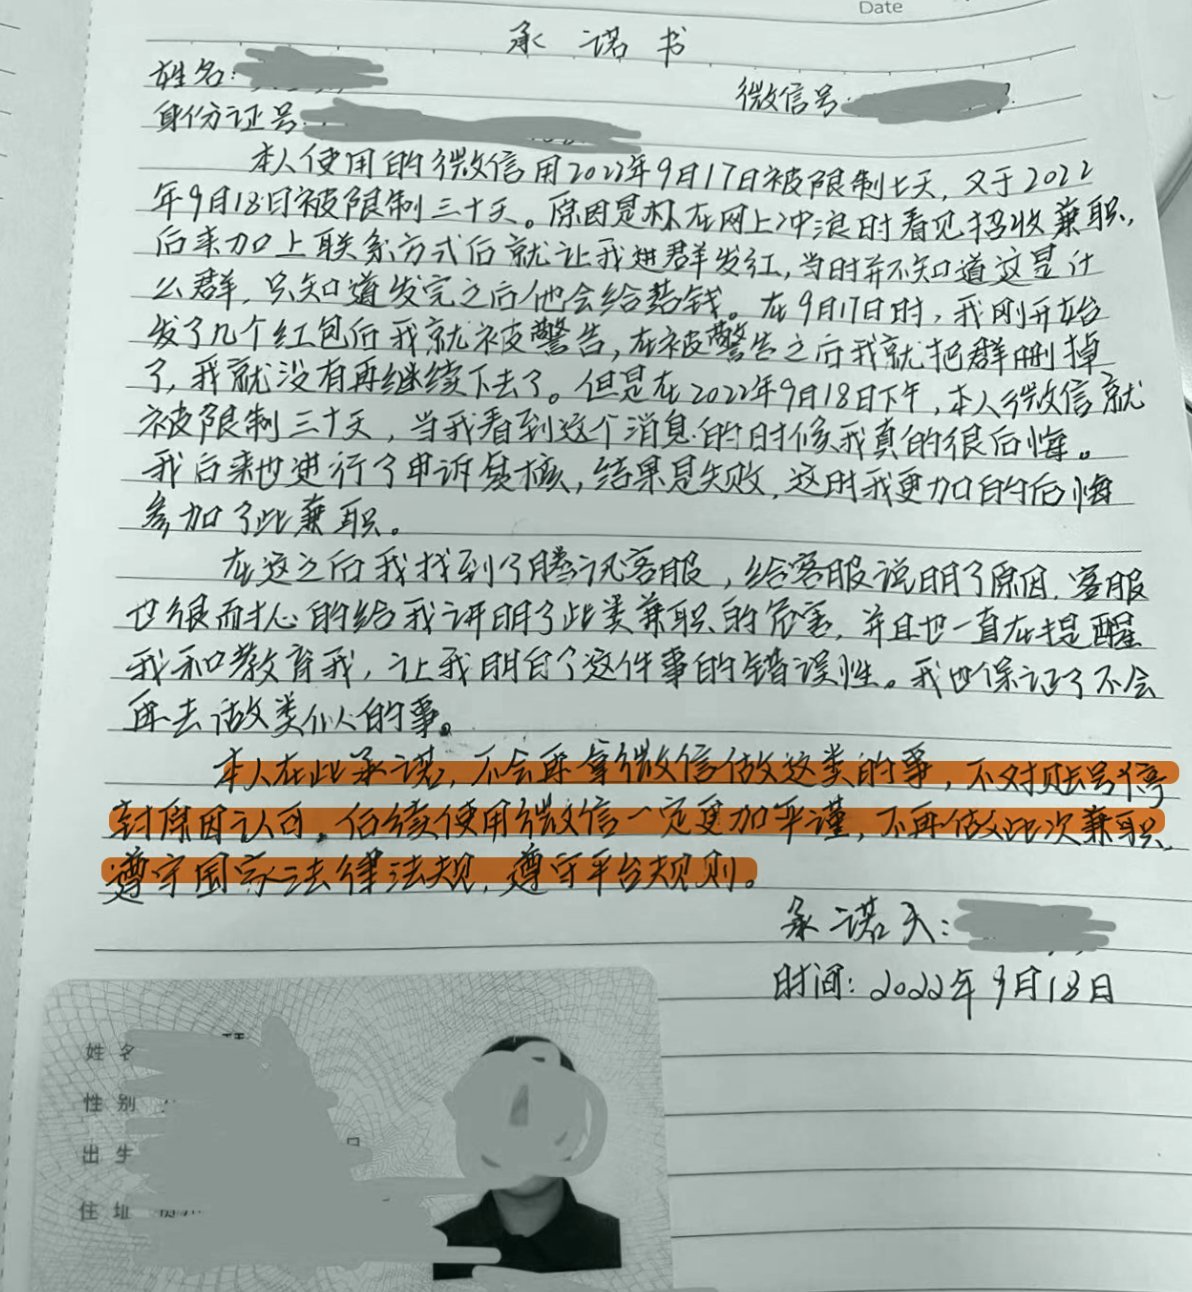 Date
承诺书
姓名:
微信号:
身份证号:
本人使用的微信用2022年9月17日被限制七天，又于2022
年9月18日被限制三十天。原因是本人在网上冲浪时看见招收兼职，
后来加上联系方式后就让我进群发红，当时并不知道这是什
么群，只知道发完之后他会给若钱。在9月17日时，我刚开始
发了几个红包后我就被警告，在被警告之后我就把群删掉
了，我就没有再继续下去了。但是在2022年9月18日下午，本人微信就
被限制三十天，当我看到这个消息的时候我真的很后悔。
我后来也进行了申诉复核，结果是失败，这时我更加的后悔
参加了此兼职。
在这之后我找到了腾讯客服，给客服说明了原因，客服
也很耐心的给我讲明了此类兼职的危害，并且也一直在提醒
我和教育我，让我明白了这件事的错误性。我也保证了不会
再去做类似的事。
本人在此承诺，不会再拿微信做这类的事，不对账号停
封原因认可，后续使用微信一定更加严谨，不再做此次兼职，
遵守国家法律法规，遵守平台规则。
承诺人:
时间: 2022年9月18日
姓名
性别
出生
日
住址